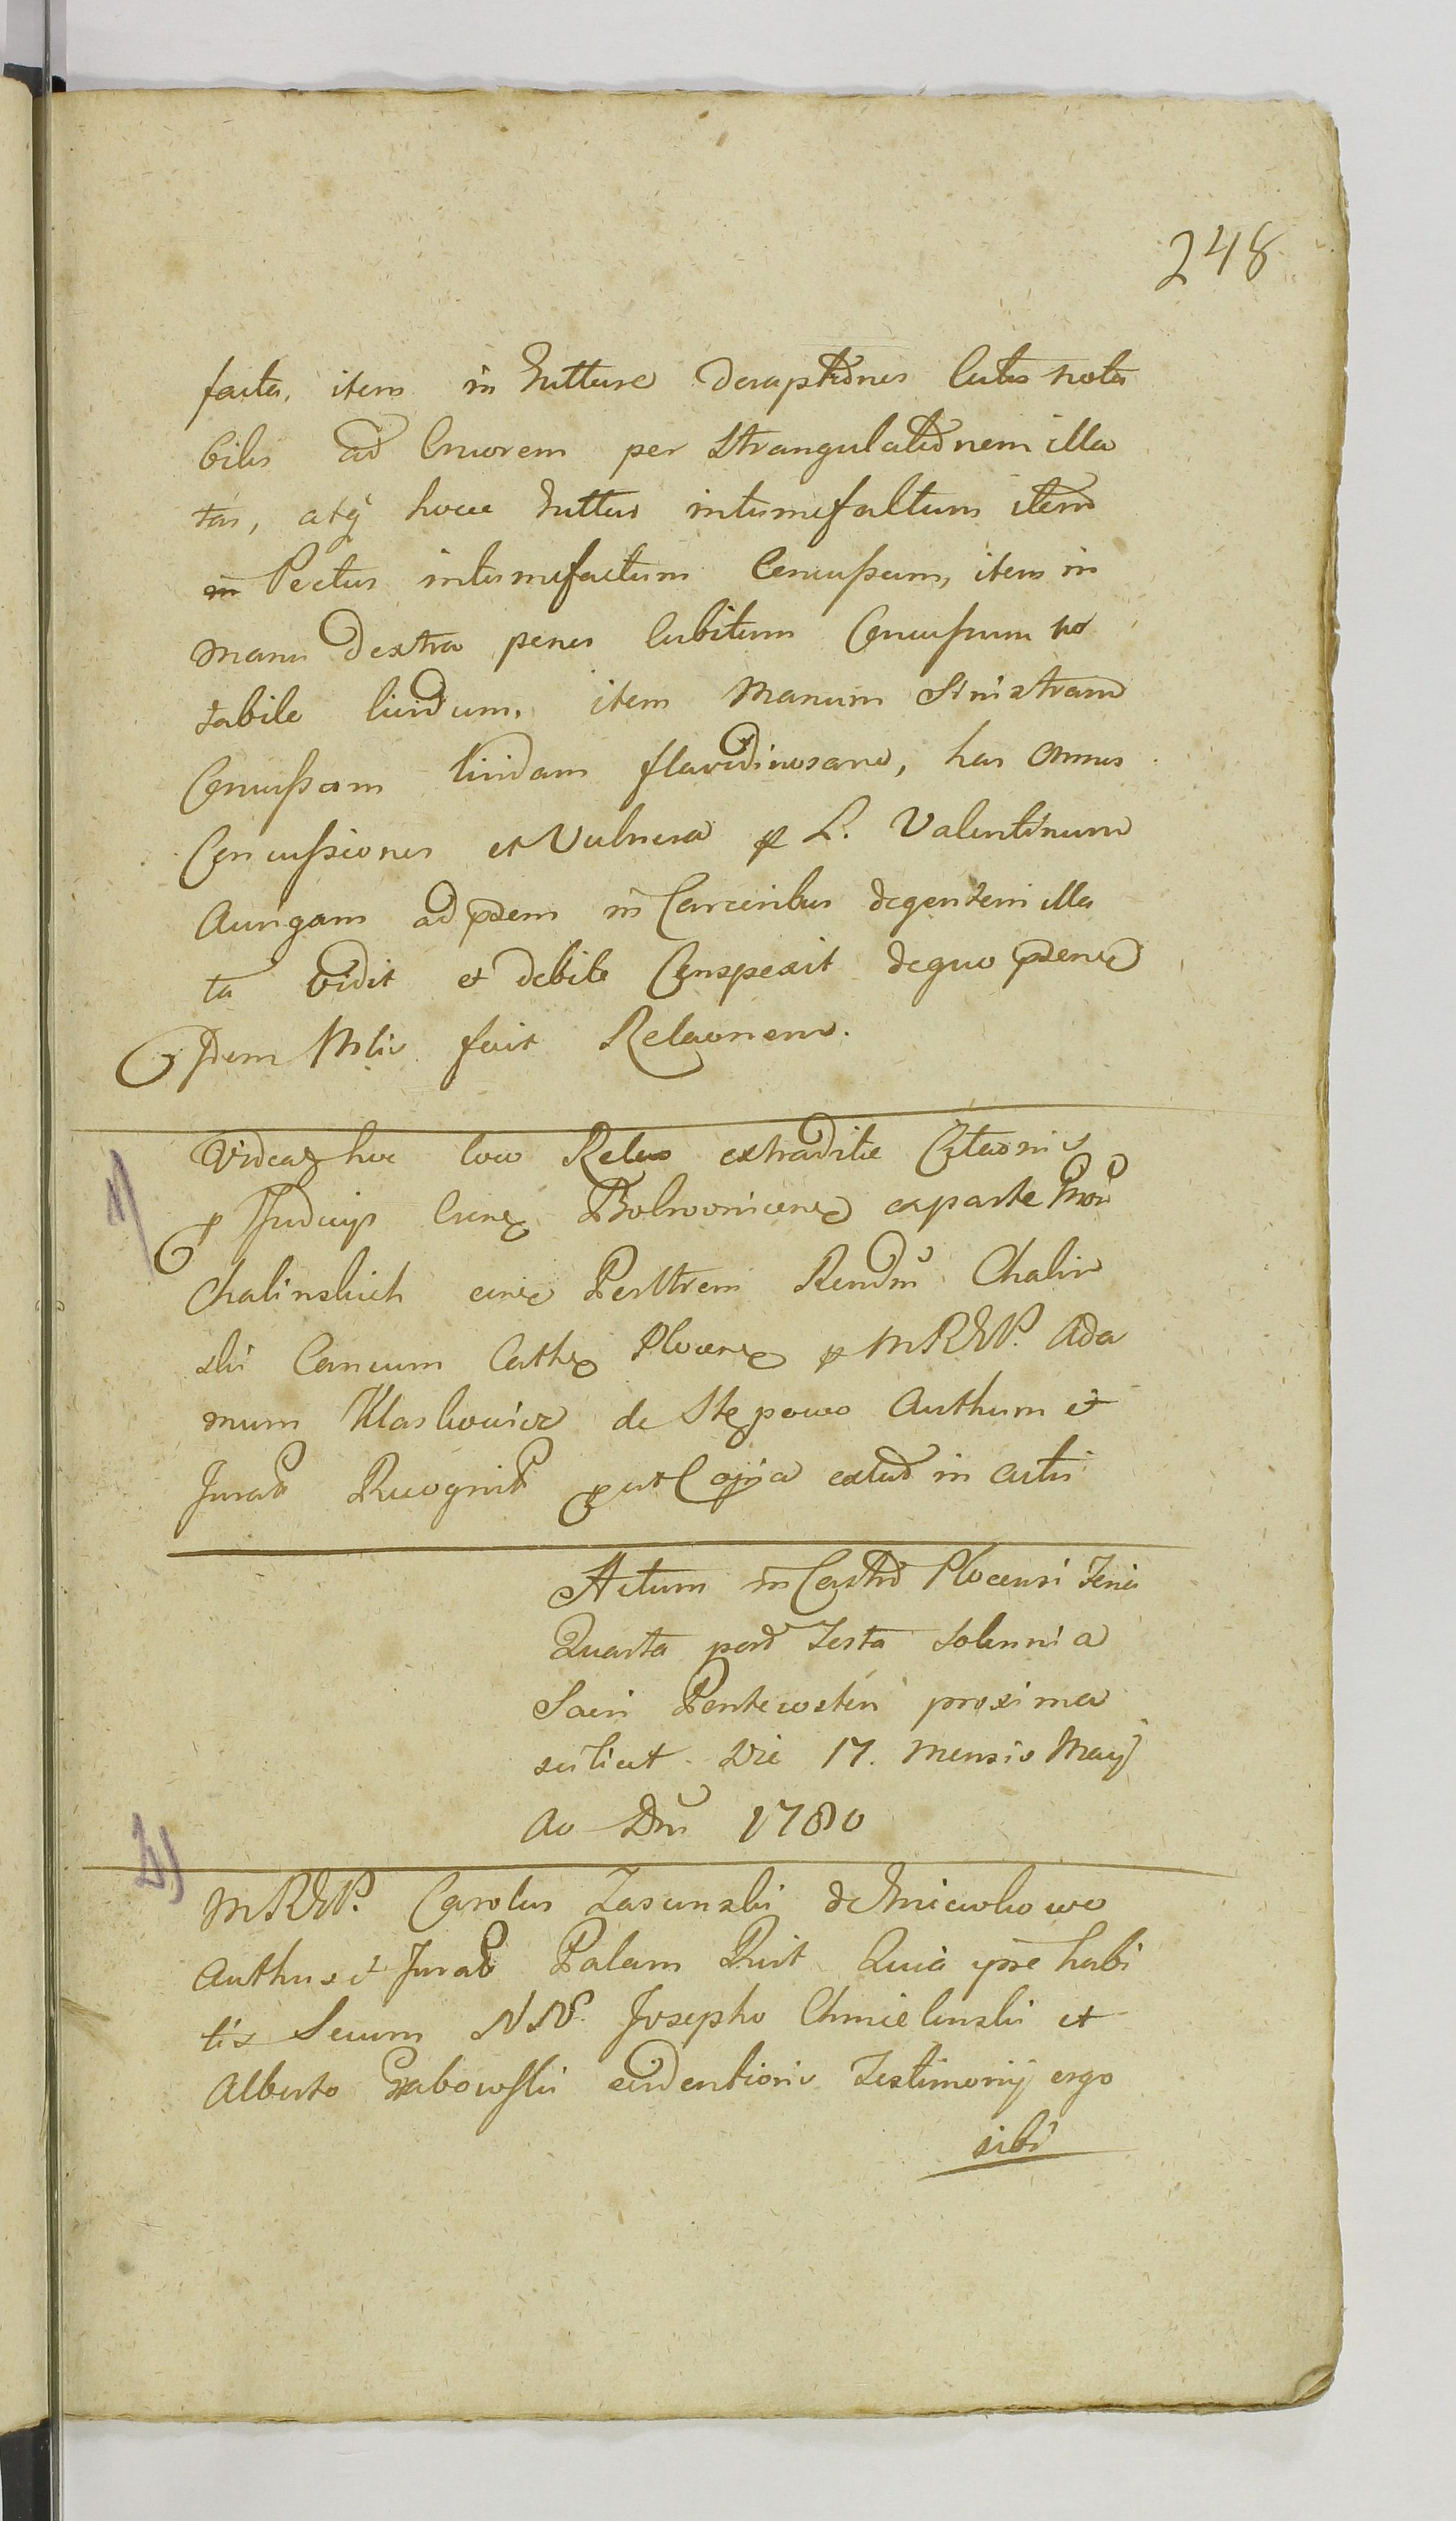 248
facta, item in Gutture deraptiones Cutis nota
bilis ad Cruorem per Strangulationem illa
tas, atq hocce Guttur intumefactum item
in Pectus intumefactum Concussum, item in
manu dextra penes Cubitum Concussum no
tabile lividum, item Manum Sinistram
Concussam lividam flavedinosam, has omnes
Concussiones et Vulnera p L. Valentinum
Aurigam ad in Carceribus degentem illa
ta vidit et debite Conspexit de quo
Idem Mlis fecit Relaonem.
1) Videat hoc loco Relao extraditæ Citaonis
p Judicys exparte
Chalinskich Chalin
ski Cancum Cath Plocens p MRGP. Ada
mum de Stepowo Authum et
Jurat Recognit put Copia extat in actis
Actum in Castro Plocensi Feria
Quarta post Festa Solennia
Sacri Pentecosten proxima
scilicet Die 17. Mensis Maij
Ao Dni 1780
2) MRGP. Carolus Zasunski de Gniewkowo
Authus et Jurat Palam Quia ipse habi
tis Secum NN. Josepho Chmielinski et
Alberto Grabowski evidentioris Testimonij ergo
sibi